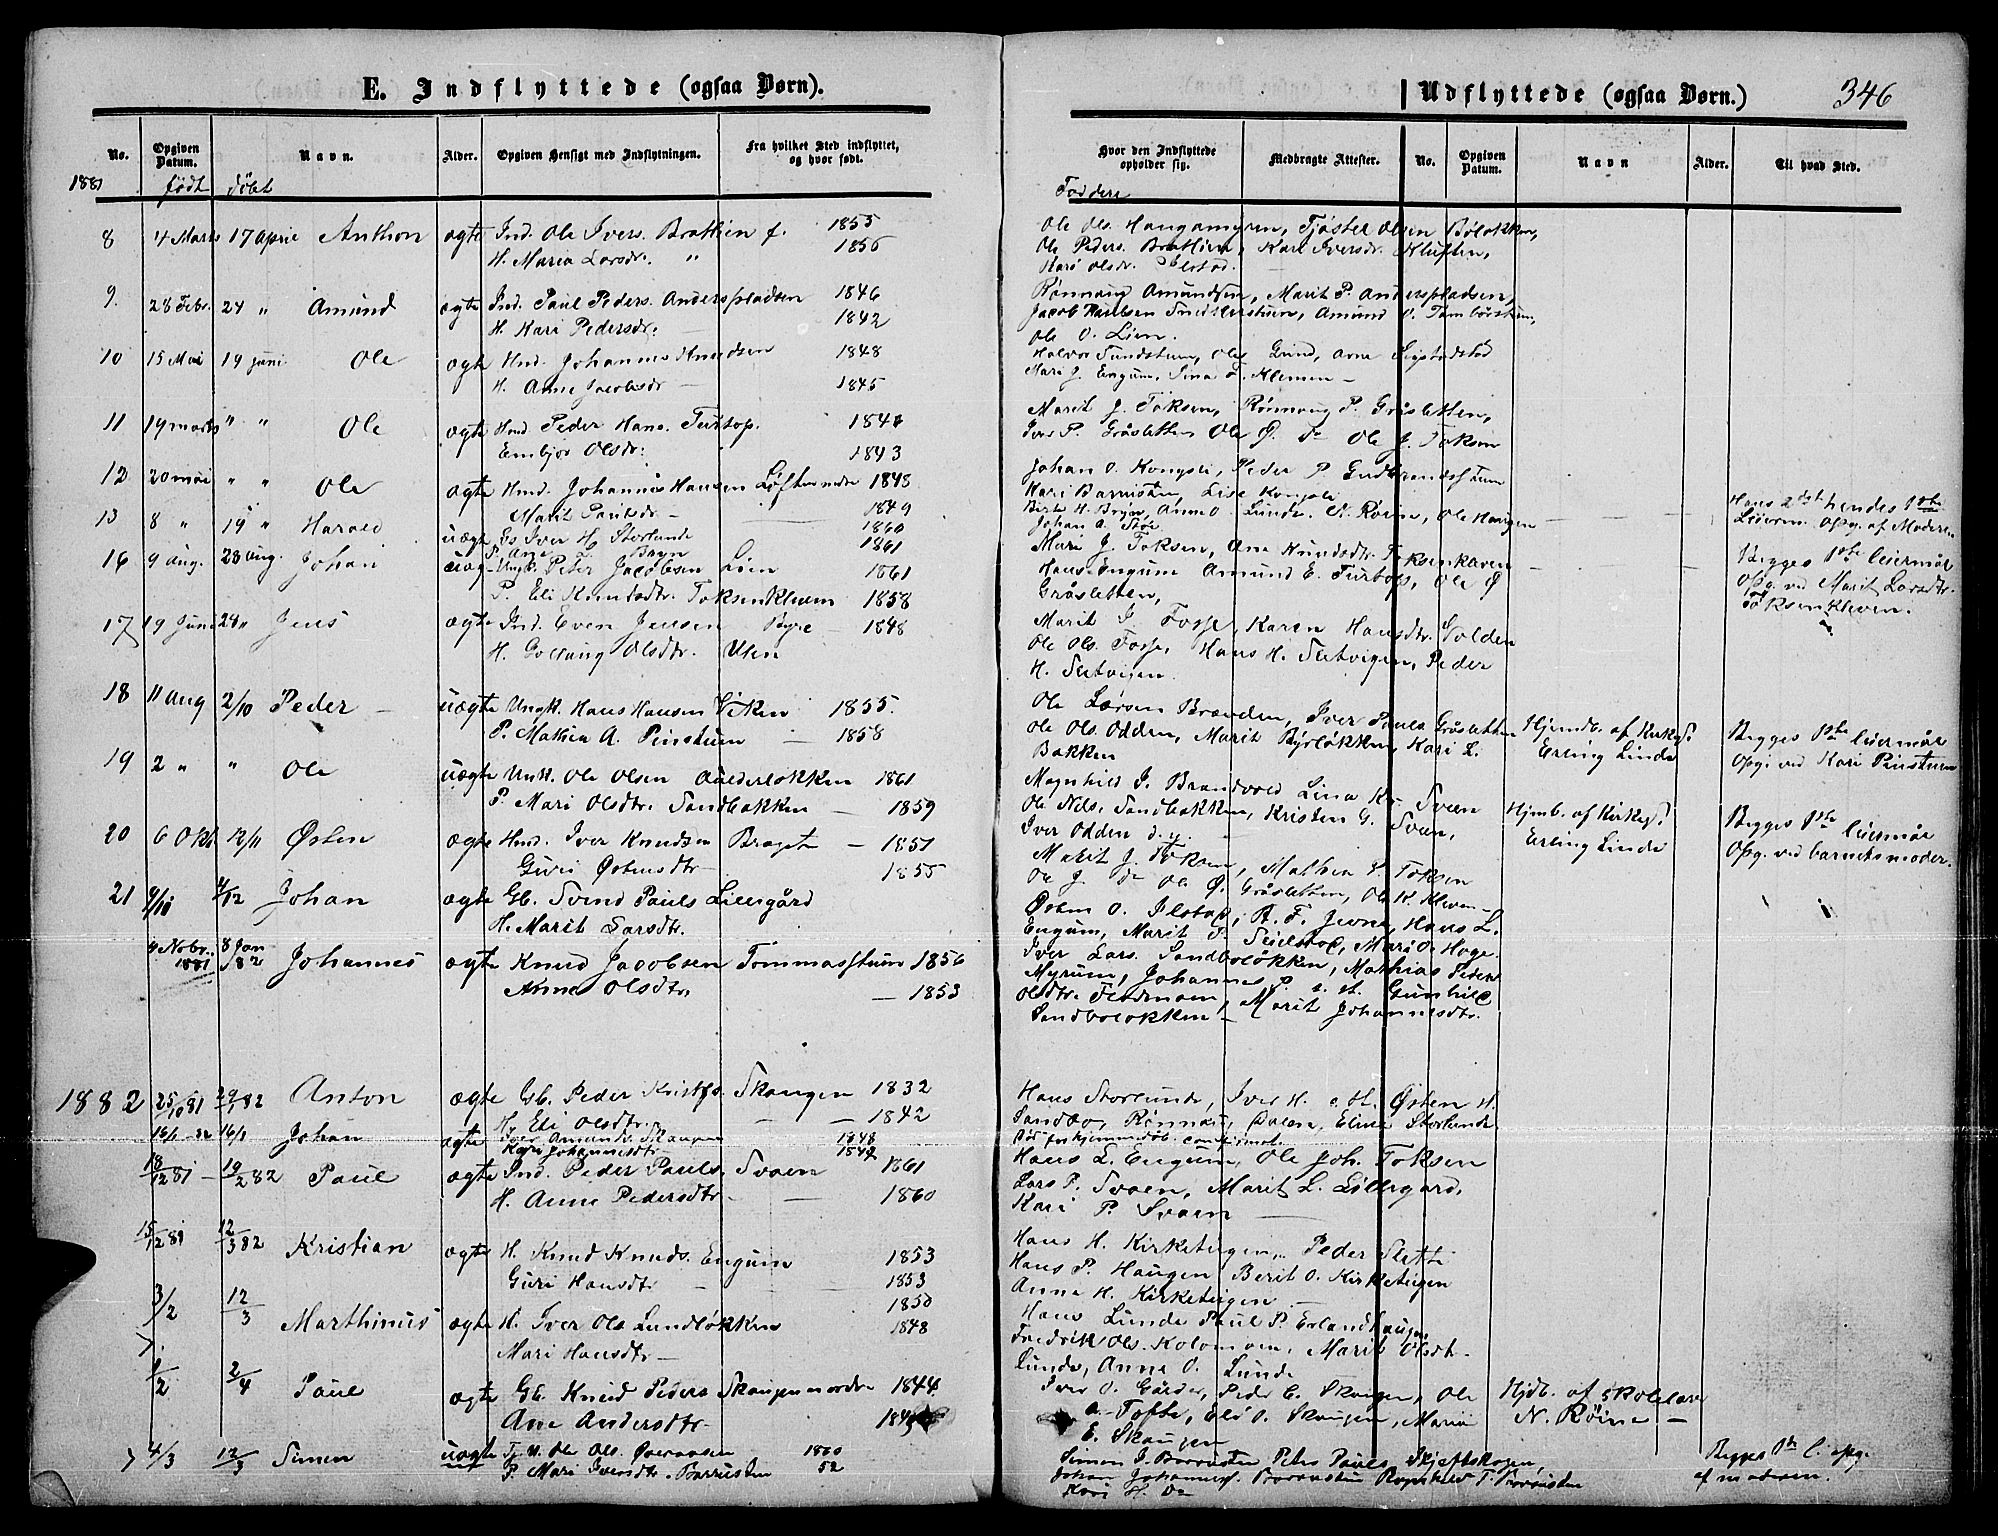 E. Indflyttede (ogsaa Børn).
No.
Opgiven Datum.
Navn.
Alder.
Opgiven Hensigt med Indflytningen.
Fra hvilket Sted indflyttet, og hvor født.
1881 født døbt
8 4 Marts 17 April Anthon ægte Ind. Ole Ivers. Brathien f. 1855
H. Maria Larsdr. " 1856
9. 28 Febr. 24 " Amund ægte Ind. Paul Peders. Anderspladsen 1846
H. Kari Pedersdr. — 1842
10 15 Mai 19 Juni Ole ægte Hmd. Johannes Knudsen 1848
H. Anne Jacobsdr — 1845
11 19 marts " " Ole ægte Hmd. Peder Hans. Turtop. 1846
Embjør Olsdr: 1843
12 20 mai " " Ole ægte Hmd. Johannes Hansen Løftseindre 1848
Marit Paulsdr — 1849
13 8 " 19 " Harald uægte Gs Iver H. Storlunde 1860
P. Ane L. Bryn 1861
16 9 Aug. 28 Aug. Johan uæg— Ungk. Peter Jacobsen Lien 1861
P. Eli Knudsdtr. Toksenkleven 1858
17 19 Juni 28 " Jens ægte Ind. Even Jensen Byre 1848
H. Gollaug Olsdtr. Ulen
18 11 Aug 2/10 Peder — uægte Ungk. Hans Hansen Viken 1855.
P. Mathea A. Pinstuen — 1858
19 2 " " Ole uægte Unk. Ole Olsen Aulderløkken 1861
P. Mari Olsdtr. Sandbakken — 1859
20 6 Okt. 13/11 Østen ægte Hmd. Iver Knudsen Braget — 1851
Guri Østensdtr — 1855
21 4/10 4/12 Johan ægte Gb. Svend Pauls Lillegård
H. Marit Larsdtr.
4 Nobr. 1881 8 Jan 82 Johannes ægte Knud Jacobsen Tommasstuen 1856
Anne Olsdtr. — 1853
1882 25/10 81 29/1 82 Anton ægte Gb. Peder Kristofs. Skaugen 1832
H. Eli Olsdtr. — — 1842
16/1 - 82 16/1 Johan ægte Iver Amunds. Skaugen 1848
Kari Johannesdtr
18/12 81 — 19/2 82 Paul ægte Ind. Peder Pauls. Svaen 1861
H. Anne Pedersdtr. — — 1860
15/12 81 12/3 82 Kristian ægte H. Knud Knuds. Engum 1853
Guri Hansdtr — 1853
3/2 12/3 Marthinus ægte H. Iver Ols Lundløkken 1850
Mari Hansdtr — 1848
1/2 2/4 Paul ægte Gb. Knud Peders Skaugen nordre 1844
Ane Andersdtr—
4/3 12/3 Simen uægte Ole Ols. Øveraasen 1860
P. Mari Iversdtr. Barrusten 52
Udflyttede (ogsaa Børn.) 346
Hvor den Indflyttede opholder sig.
Medbragte Attester.
No.
Opgiven Datum.
Navn
Alder.
Til hvad Sted.
Faddere
Ole Ols. Haugamyren, Tjøster Olsen Bøløkken,
Ole Peders. Brathien, Kari Iversdr. Kluften,
Kari Olsdr. Ilstad.
Rønnaug Amundsen, Marit P. Anderspladsen,
Jacob Paulsen Snidkerstuen, Amund O. Tambørstuen,
Ole O. Lien.
Halvor Sundstuen, Ole Grind, Arne Segstadstad
Mari J. Engum, Sina F. Klemen —
Marit J. Toksen, Rønnaug P. Gråsletten,
Iver P. Gråsletten Ole Ø. Do Ole J. Toksen
Johan O. Kongsli, Peder P. Gudbrandsstuen
Kari Barrusten, Lise Kongsli
Birte H. Bryn, Anne O. Lunde. N. Røine, Ole Haugen
Johan A. Stoe
Hans 2det hendes 1ste
Leierm. Opg. af Modere.
Mari J. Toksen, Ane Knudsdtr. Toksenhaven
Hans Engum Amund E. Turtop, Ole Ø
Gråsletten,
Begges 1ste leiermål
Opg. ved Marit Larsdtr.
Toksenkleven.
Marit J. Fosse, Karen Hansdtr. Volden
Ole Ols. Fosse, Hans H. Sletvigen, Peder
H. Sletvigen
Ole Larsen Brænden, Iver Pauls Gråsletten
Ole Ols. Odden, Marit Byrløkken, Kari L.
Bakken
Hjemdb. af Kirkes.
Erling Linde
Begges 1ste leiermål
Opg. ved Kari Pinstuen
Magnhild I. Brandvold Lina K. Svaen
Ole Nils. Sandbakken, Kristen G. Svaen,
Iver Odden d.y.
Hjmb. af Kirkes.
Erling Linde
Begges 1ste leiermål
Opg. ved barnets moder.
Marit J. Toksen, Mathea L. Toksen
Ole J. do Ole Ø. Gråsletten, Ole K. Kleven—
Østen O. Ilstad, R. F. Jevne, Hans L.
Engum, Marit P. Seielstad, Mari O. Hage.
Iver Lars. Sandboløkken, Mathias Peders
Myrum, Johannes P. e. st. Gunhild
Olsdtr. Flermoen, Marit Johannesdtr.
Sandboløkken —
Hans Storlunde, Iver H. e. st. Østen H.
Sandbo, Rønnau, Dalen, Eline Storlunde
Bør før hjemmedøb. confirmet.
Hans L. Engum, Ole Joh. Toksen
Lars P. Svaen, Marit L. Lillegard,
Kari P. Svaen —
Hans H. Kirketeigen, Peder Slette
Hans P. Haugen Berit O. Kirketeigen
Anna H. Kirketeigen —
Hans Lunde Paul P. Erlandhaugen
Fredrik Ols. Kolomoen, Marit Olsdt.
Lunde, Anne O. Lunde
Iver O. Gårder, Peder C. Skaugen, Ole
A. Tofte, Eli O. Skaugen, Maria
E. Skaugen
Hjdb. af skolelærer
N. Røine —
Simen I. Barrusten Peter Pauls. Skjeftskogen,
Johan Johannes. Barrusten Ragnhild T. Barrusten
Kari H. Do
Begges 1ste l. opg.
af moderen.